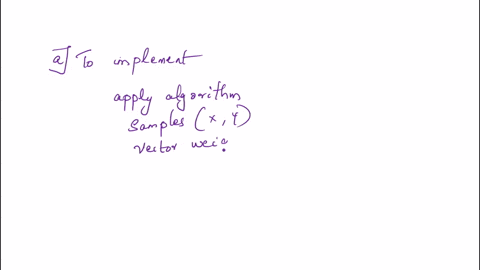 a] To implement
apply algorithm
Samples (x, y)
vector wei